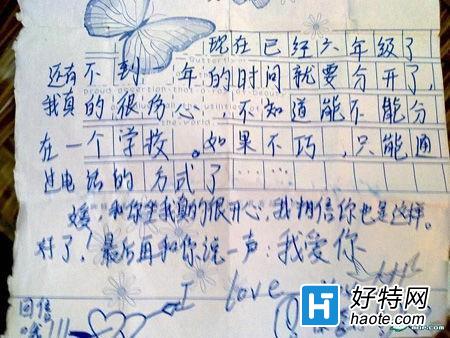 现在已经六年级了
还有不到一年的时间就要分开了,
我真的很伤心,不知道能不能分
在一个学校。如果不巧,只能通
过电话的方式了……
媛,和你坐我真的很开心,我相信你也是这样。
好了!最后再和你说一声:我爱你
I love
回信
哦!!!
H 好特网
haote.com